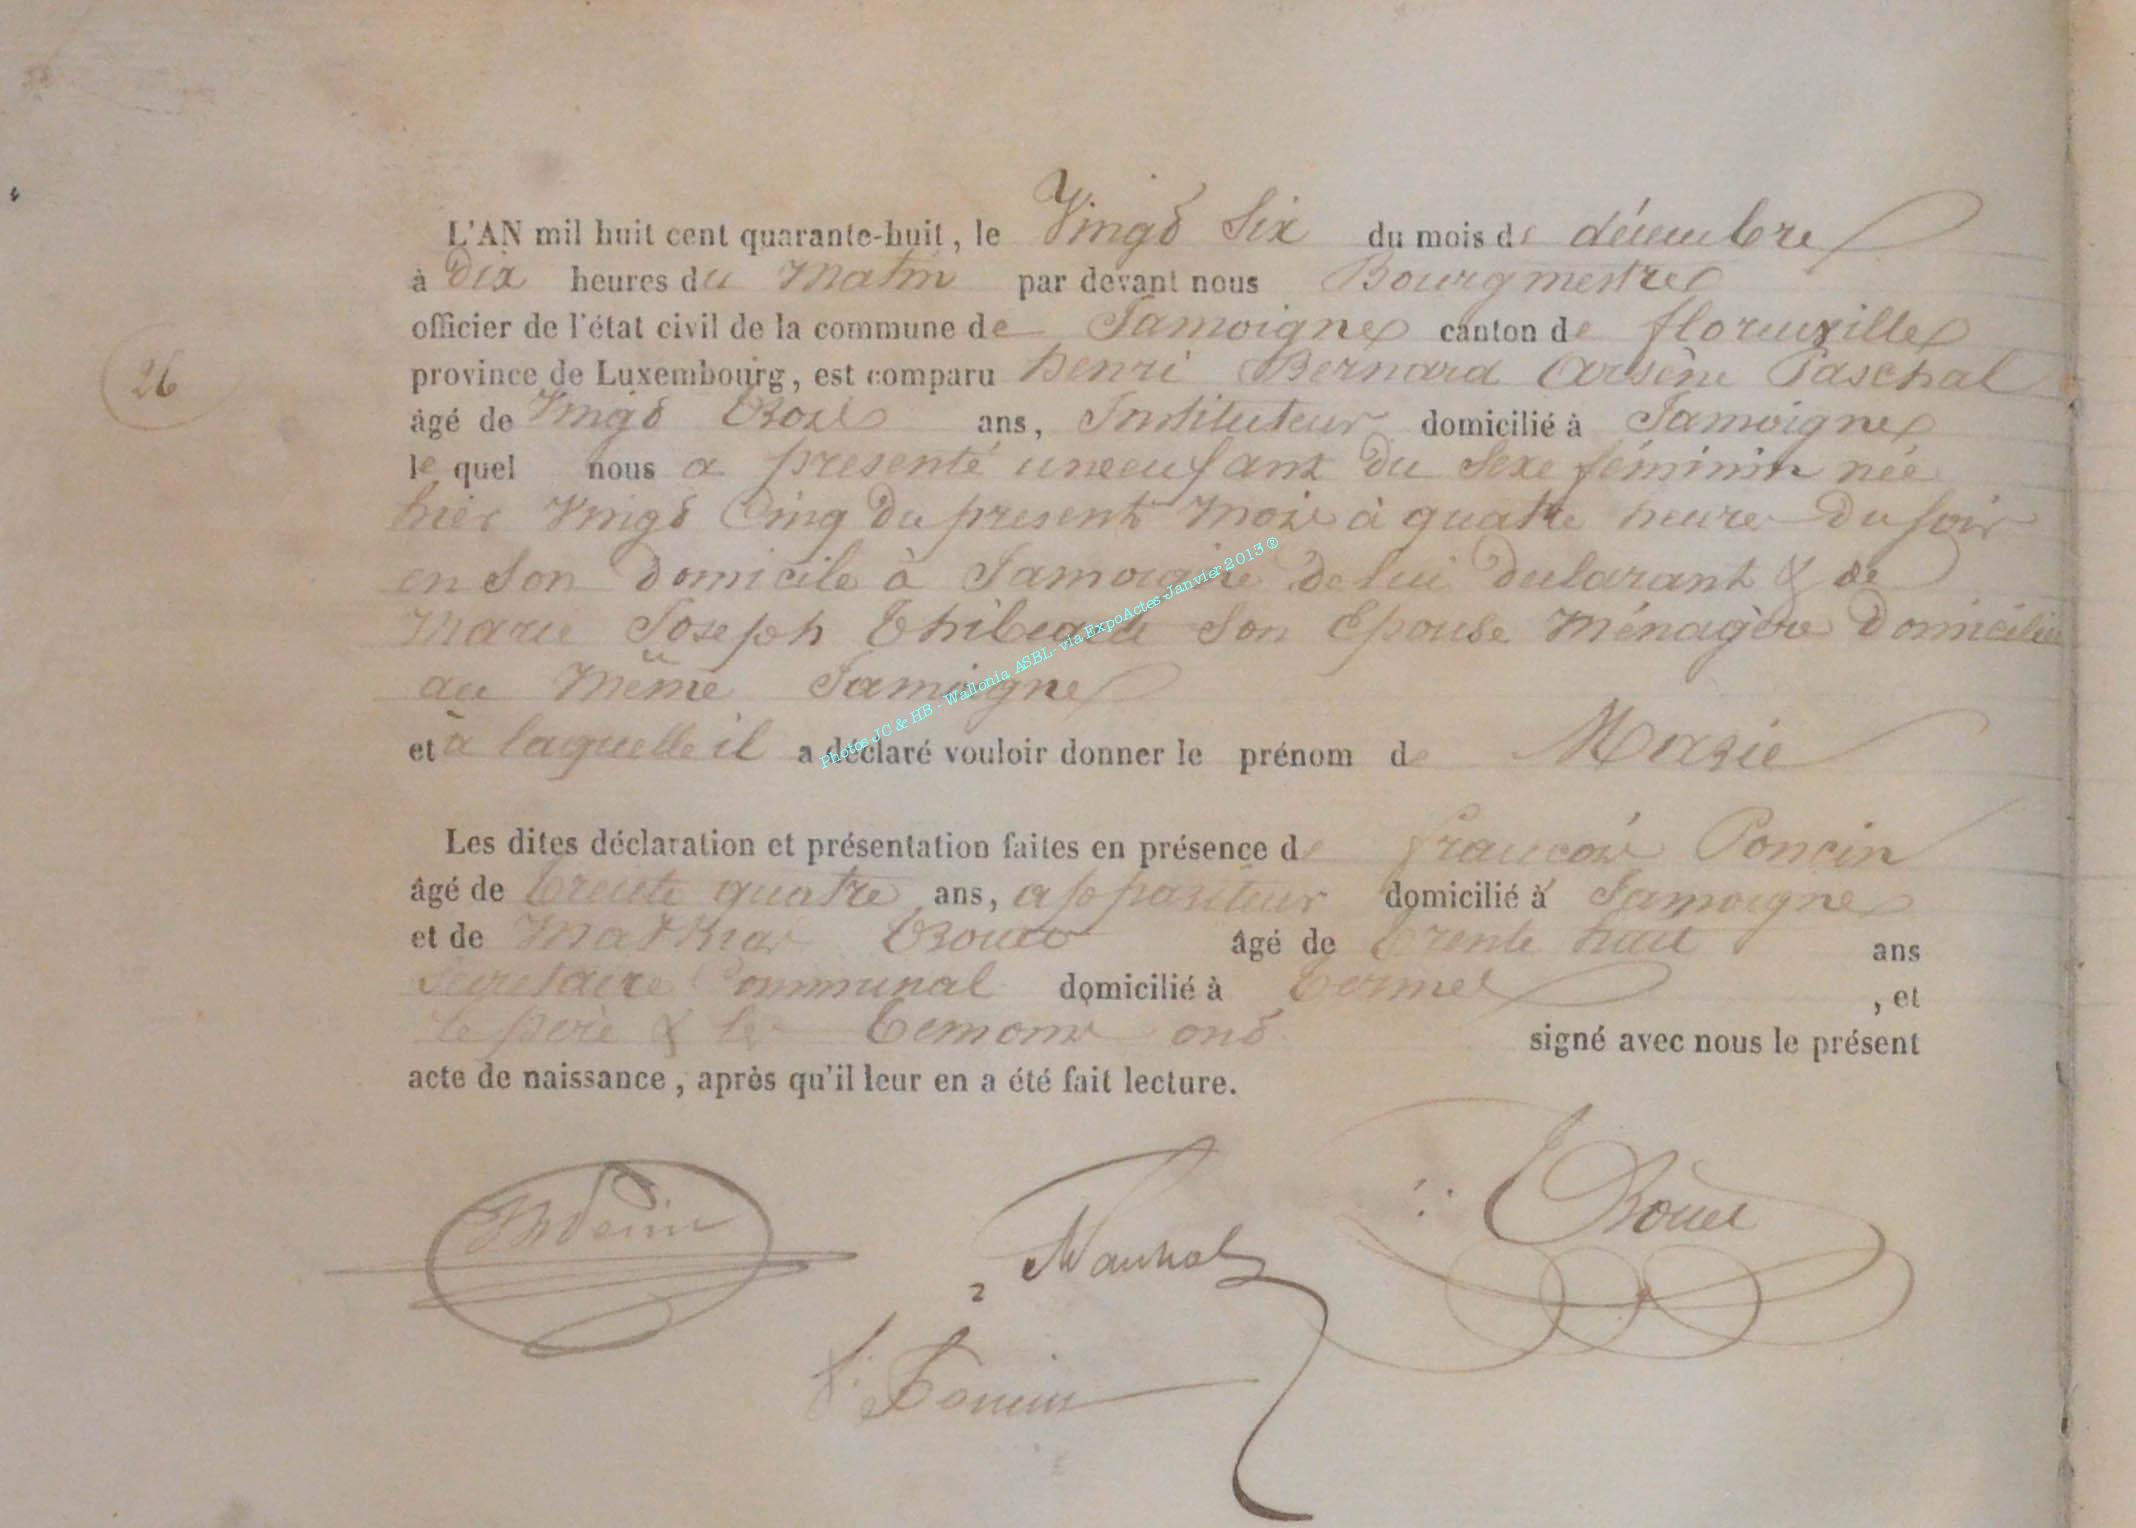 L'AN mil huit cent quarante-huit, le Vingt Six du mois de décembre
à Dix heures du Matin par devant nous Bourgmestre
officier de l'état civil de la commune de Jamoigne canton de florenville
26
province de Luxembourg, est comparu henri Bernard Arsène Paschal
âgé de Vingt trois ans, Instituteur domicilié à Jamoigne
le quel nous a presenté une enfant du Sexe féminin née
hier Vingt Cinq du present mois à quatre heures du soir
en Son domicile à Jamoigne de lui declarant & de
Marie Joseph Son Epouse Ménagère Domiciliée
au même Jamoigne
et à laquelle il a déclaré vouloir donner le prénom de Marie
Les dites déclaration et présentation faites en présence de françois Poncin
âgé de trente quatre ans, appariteur domicilié à Jamoigne
et de Mathias âgé de trente huit ans
Secretaire Communal domicilié à termes , et
le père & les temoins ont signé avec nous le présent
acte de naissance, après qu'il leur en a été fait lecture.
f. Poncin
Photos JC & HB - Wallonia ASBL- via ExpoActes -Janvier 2013 ®